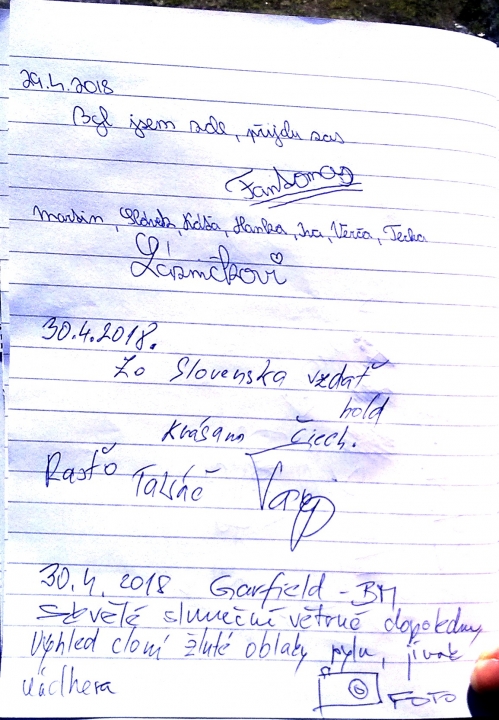 29.4.2018
Byl jsem zde, přijdu zas
Fantomas
Martin, Káťa, Hanka, Iva, Verča, Terka
30.4.2018.
Zo Slovenska vzdať
hold
krásam Čiech.
Rasťo
30.4.2018 Garfield - BM
Skvělé slunečné větrné dopoledne
Výhled cloní žluté oblaky pylu, jinak
nádhera
FOTO